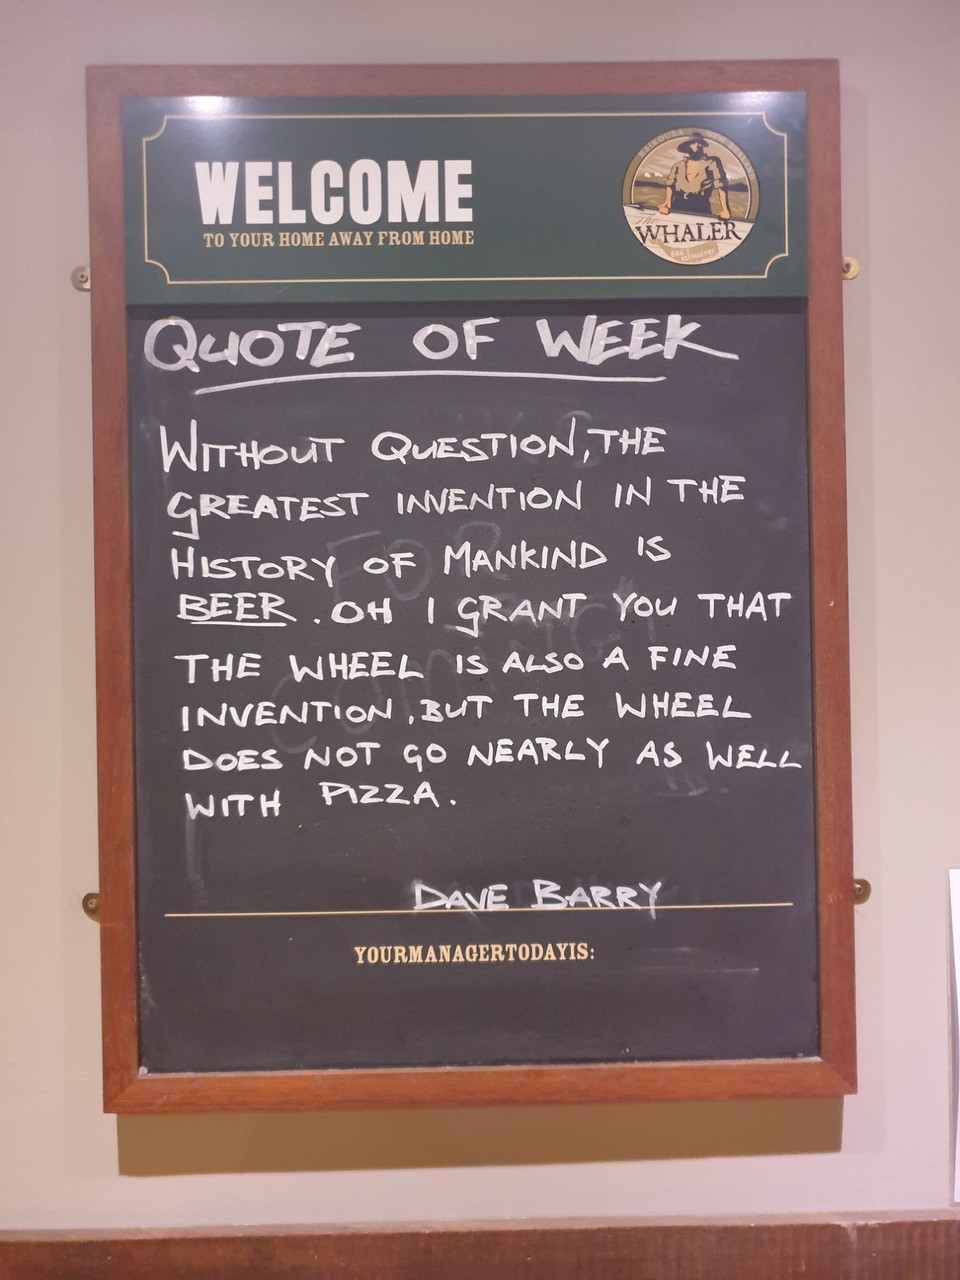 WELCOME
TO YOUR HOME AWAY FROM HOME
KAIKOURA NEW ZEALAND
The
WHALER
BAR &
RESTAURANT
QUOTE OF WEEK
WITHOUT QUESTION, THE
GREATEST INVENTION IN THE
HISTORY OF MANKIND IS
BEER. OH I GRANT YOU THAT
THE WHEEL IS ALSO A FINE
INVENTION. BUT THE WHEEL
DOES NOT GO NEARLY AS WELL
WITH PIZZA.
DAVE BARRY
YOURMANAGERTODAYIS: